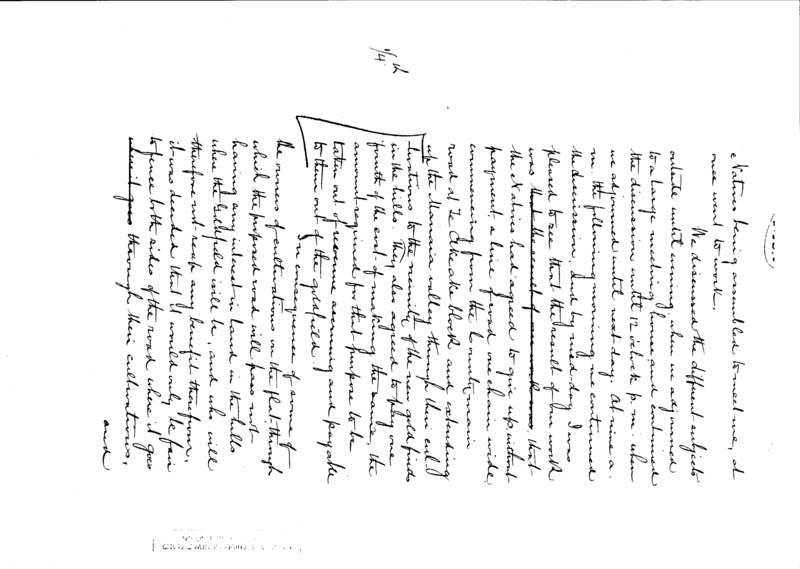 Natives being assembled to meet me, at
once went to work.
We discussed the different subjects
outside until evening, when we adjourned
to a large meeting house and continued
the discussion until 12 o'clock p.m. when
we adjourned until next day. At nine a.
m. the following morning we continued
the discussion, and by mid-day I was
pleased to see that the result of our work
was that
the Natives had agreed to give up without
payment a line of road one chain wide,
commencing from the County main
road at Te block and extending
up the valley through their cul-
tivations to the vicinity of the new gold finds
in the hills. They also agreed to pay one
fourth of the cost of making the same, the
amount required for that purpose to be
taken out of revenue accruing and payable
to them out of the goldfield.
In consequence of some of
the owners of cultivations on the flat through
which the proposed road will pass not
having any interest in land in the hills
where the Goldfield will be, and who will
therefore not reap any benefit therefrom,
it was decided that it would only be fair
to fence both sides of the road where it goes
through their cultivations,
and
1/4